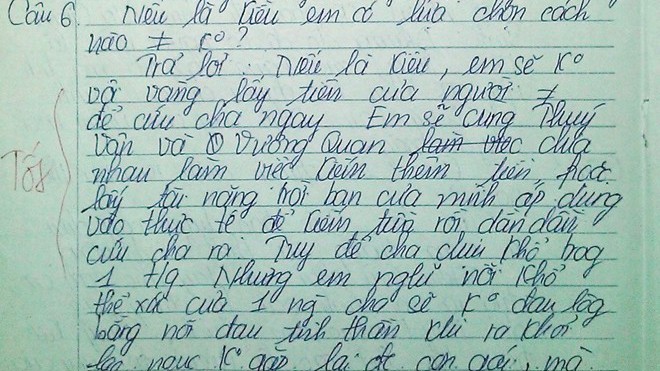 Câu 6. Nếu là Kiều em có lựa chọn cách
nào ≠ K°?
Trả lời: Nếu là Kiều, em sẽ K°
vội vàng lấy tiền của người ≠
để cứu cha ngay. Em sẽ cùng Thuý
Vân và Vương Quan làm việc chia
nhau làm việc kiếm thêm tiền hoặc
lấy tài năng trời ban của mình áp dụng
vào thực tế để kiếm tiền rồi dần dần
cứu cha ra. Tuy để cha chịu khổ trog
1 t/g. Nhưng em nghĩ nỗi khổ
thể xác của 1 ng cha sẽ K° đau lòg
bằng nỗi đau tinh thần khi ra khỏi
lao ngục K° gặp lại đc con gái, mà
Tốt